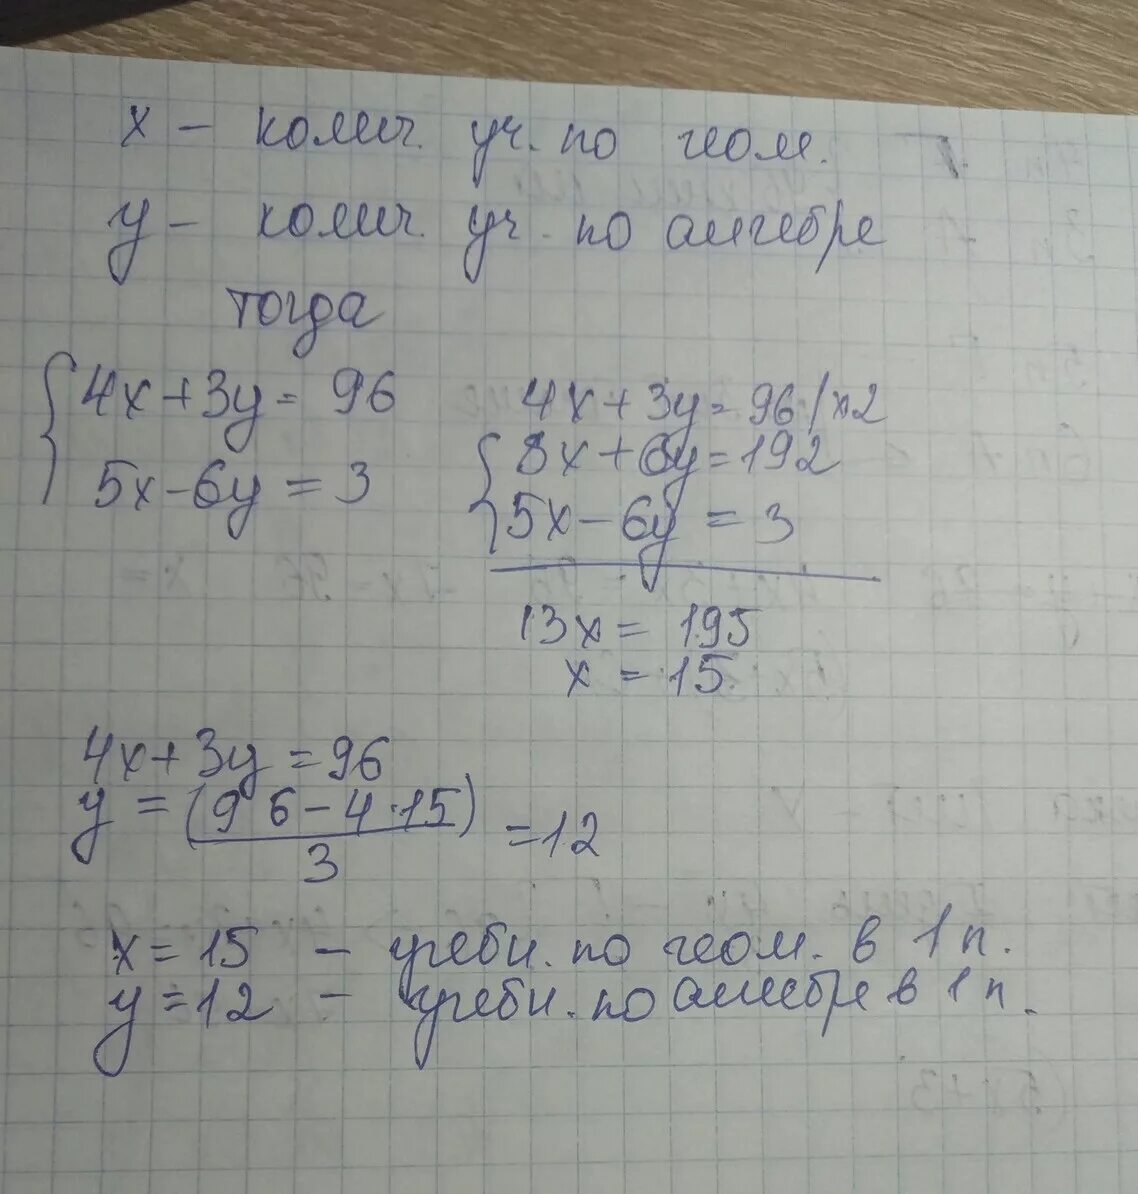 x – колич. уч. по геом.
y – колич. уч. по алгебре
тогда
4x+3y= 96
5x-6y = 3
4x+3y=96/x2
8x+6y=192
5x-6y = 3
13x= 195
x = 15
4x+3y=96
y = (96-4·15)
3
=12
x=15 – учебн. по геом. в 1 п.
y=12 – учебн. по алгебре в 1 п.